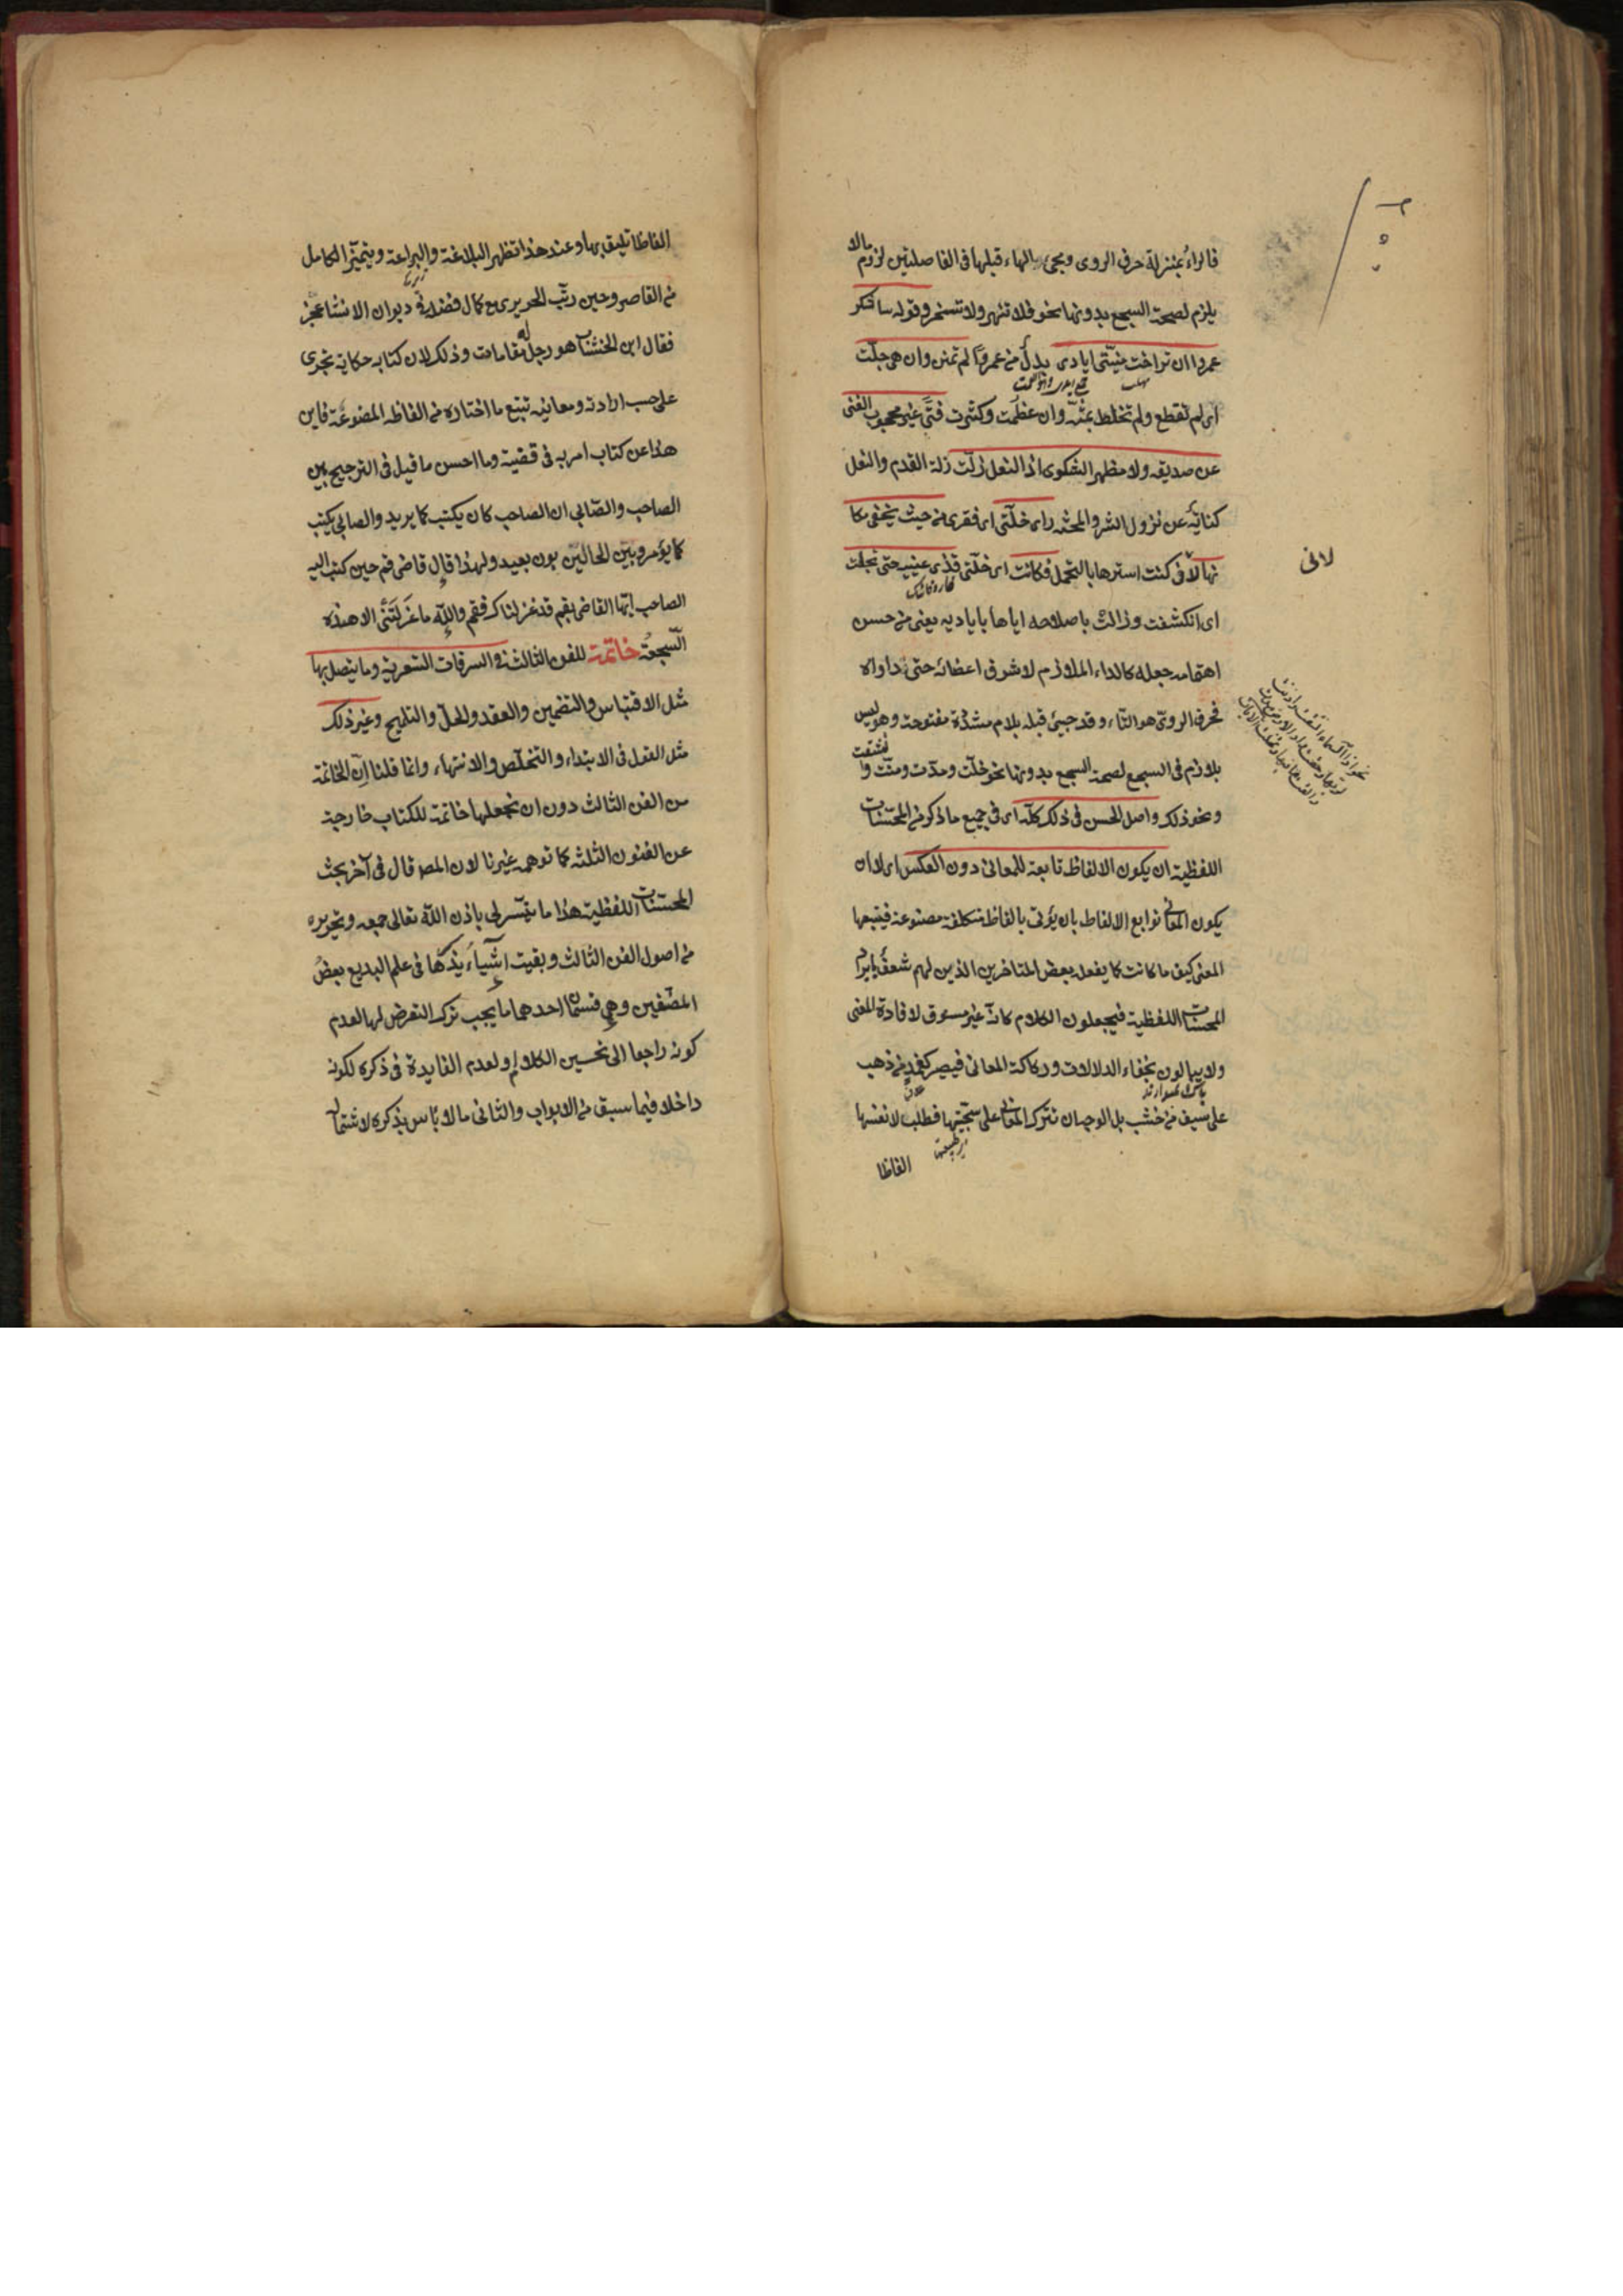 فالراءُ بمنزلة حرف الروى ومجئ الهاء قبلها فى الفاصلتين لزوم مالا
يلزم لصحة السجع بدونها نحو فلا تنهر ولا تسخر وقوله ساشكر
عمروا ان تراخت منيّتى ايادى بدلٌ من عمروًا لم تمنن وان هى جلّت
اى لم تقطع ولم تخلط بمنّة وان عظُمت وكثرت فتًى غير محجوب الغنى
عن صديقه ولا مظهر الشكوى اذا النعل زلّت زلة القدم والنعل
كناية عن نزول الشر والمحنة راى خلّتى اى فقرى من حيث يخفى مكا
نها لانى كنت استرها بالتجمل فكانت اى خلّتى قذى عينيه حتى تجلت
اى انكشفت وزالت باصلاحه اياها باياديه يعنى من حسن
اهتمامه جعله كالداء الملازم لاشرف اعضائه حتى تداواه
فحرف الروىّ هو التاء وقد جيئ قبله بلام مشدّدة مفتوحة وهو ليس
بلازم فى السجع لصحة السجع بدونها نحو خلّت ومدّت ومنّت وانشقت
ونحو ذلك واصل الحسن فى ذلك كلّه اى فى جميع ما ذكر من المحسّنات
اللفظية ان يكون الالفاظ تابعة للمعانى دون العكس اى لا ان
يكون المعانى توابع الالفاظ بان يؤتى بالفاظ متكلفة مصنوعة فيتبعها
المعنى كيف ما كانت كما يفعله بعض المتاخرين الذين لهم شعفٌ بايراد
المحسّنات اللفظية فيجعلون الكلام كانّه غير مسوق لافادة المعنى
ولا يبالون بخفاء الدلالات وركاكة المعانى فيصير كغمدٍ من ذهب
على سيف من خشب بل الوجه ان تترك المعانى على سجيّتها فطلب لانفسها
الفاظا
الفاظا تليق بها وعند هذا تظهر البلاغة والبراعة ويتميّز الكامل
من القاصر وحين رتّب الحريرى مع كمال فضله فى ديوان الانشا عجز
فقال ابن الخشّاب هو رجل له مقامات وذلك لان كتابه حكاية تجرى
على حسب ارادته ومعانيه تتبع ما اختاره من الفاظه المصنوعة فاين
هذا عن كتاب امر به فى قضية وما احسن ما قيل فى الترجيح بين
الصاحب والصّابى ان الصاحب كان يكتب كما يريد والصابى يكتب
كما يؤمر وبين الحالين بون بعيد ولهذا قال قاضى قم حين كتب اليه
الصاحب ايّها القاضى بقم قد عزلناك فقم والله ما عَزَلَتنى الا هذه
السّجعة خاتمة للفن الثالث فى السرقات الشعرية وما يتصل بها
مثل الاقتباس والتضمين والعقد والحلّ والتلميح وغير ذلك
مثل القول فى الابتداء والتخلّص والانتهاء وانما قلنا انّ الخاتمة
من الفن الثالث دون ان نجعلها خاتمة للكتاب خارجة
عن الفنون الثلثة كما توهمه غيرنا لان المصر قال فى آخر بحث
المحسّنات اللفظية هذا ما تيسّر لى باذن الله تعالى جمعه وتحريره
من اصول الفن الثالث وبقيت اشياءُ يذكرها فى علم البديع بعضُ
المصنّفين وهى قسمان احدهما ما يجب ترك التعرض لها لعدم
كونه راجعا الى تحسين الكلام او لعدم الفايدة فى ذكره لكونه
داخلا فيما سبق من الابواب والثانى ما لا باس بذكره لاشتماله
لانى